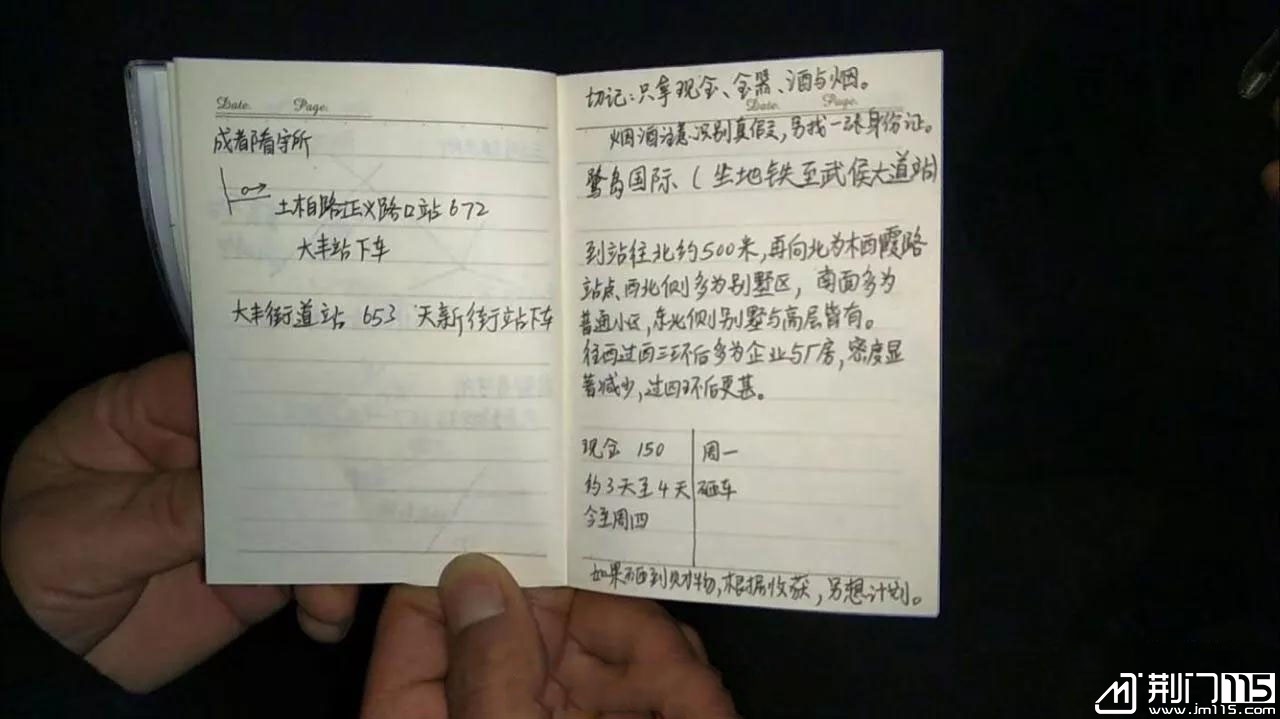 Date.        Page.
成都看守所
土柏路正义路口站 672
大丰站下车
大丰街道站 653 天新街站下车
切记:只拿现金、金器、酒与烟。
Date.        Page.
烟酒注意识别真假,另找一张身份证。
鹭岛国际、(坐地铁至武侯大道站)
到站往北约500米,再向北为栖霞路
站点、西北侧多为别墅区,南面多为
普通小区,东北侧别墅与高层皆有。
往西过西三环后多为企业与厂房,密度显
著减少,过四环后更甚。
现金 150 周一
约3天至4天 砸车
今至周四
如果砸到财物,根据收获,另想计划。
荆门115
www.jm115.com